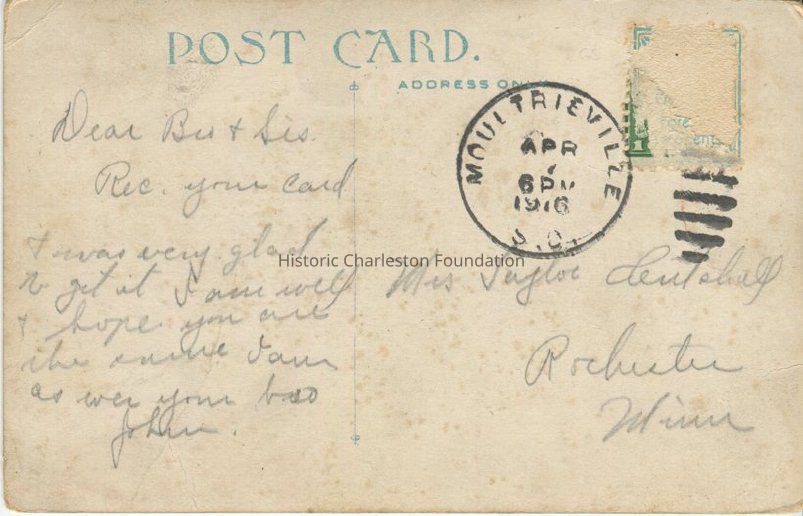 POST CARD.
ADDRESS ONLY
MOULTRIEVILLE
APR
7
6PM
1916
S.C.
1
Dear Bro & Sis.
Rec. your card
& was very glad
to get it I am well
& hope you are
the same I am
as ever your bro
John.
Historic Charleston Foundation
Mrs
Rochester
Minn